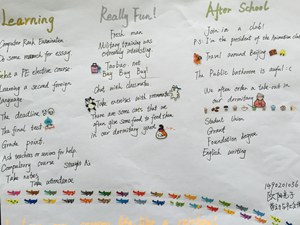 Learning
Computer Rank Examination
Do some research for essay
a PE elective course
Learning a second foreign
language
The deadline
The final test
Grade point
Ask teachers or seniors for help
Compulsory course Straight As
Take notes
Take attendance
Really Fun!
Fresh man
Military training was
extremely interesting
Bug Bug Bug!
Chat with classmates
Take exercises with roommates
There are some cats that we
often give some food to feed them
in our dormitory yard
After School
Join in a club!
P.S: I'm the president of the Animation club
Travel around Beijing
The Public bathroom is awful :(
We often order a take-out in
our dormitory
Student Union
Grant
Foundation lesson
English writing